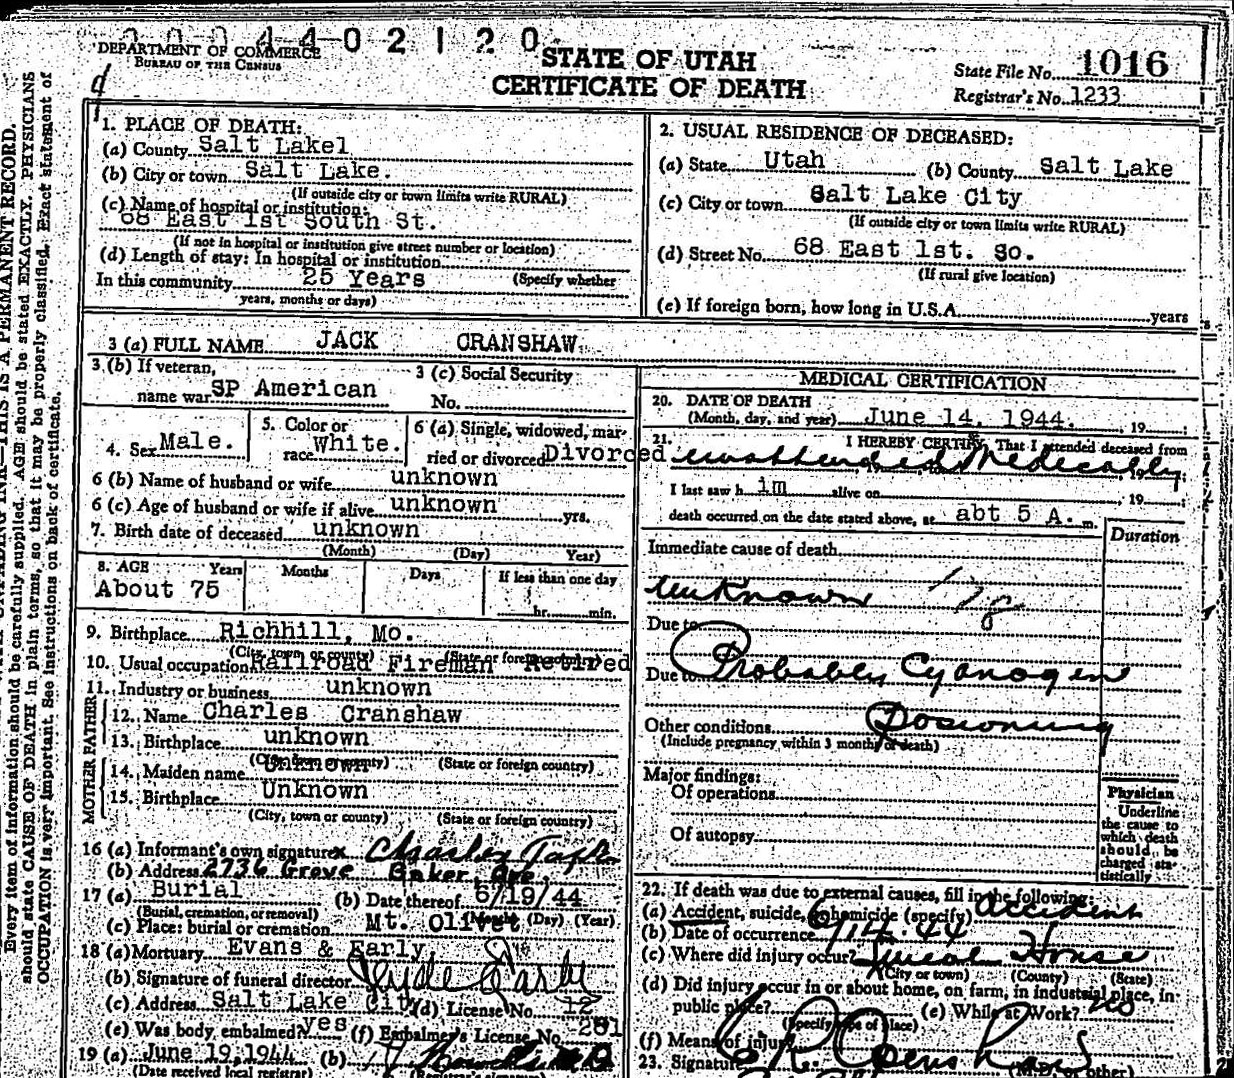 0 0 4 4-0 2 1 2 0
DEPARTMENT OF COMMERCE
BUREAU OF THE CENSUS
STATE OF UTAH
CERTIFICATE OF DEATH
State File No. 1016
Registrar's No. 1233
1. PLACE OF DEATH:
(a) County Salt Lakel
(b) City or town Salt Lake.
(If outside city or town limits write RURAL)
(c) Name of hospital or institution:
68 East 1st South St.
(If not in hospital or institution give street number or location)
(d) Length of stay: In hospital or institution
In this community 25 Years (Specify whether
years, months or days)
2. USUAL RESIDENCE OF DECEASED:
(a) State Utah (b) County Salt Lake
(c) City or town Salt Lake City
(If outside city or town limits write RURAL)
(d) Street No. 68 East 1st. So.
(If rural give location)
(e) If foreign born, how long in U.S.A. years
3 (a) FULL NAME JACK CRANSHAW
3 (b) If veteran,
name war SP American
3 (c) Social Security
No.
4. Sex Male.
5. Color or
race White.
6 (a) Single, widowed, mar-
ried or divorced Divorced
6 (b) Name of husband or wife unknown
6 (c) Age of husband or wife if alive unknown yrs.
7. Birth date of deceased unknown
(Month) (Day) Year)
8. AGE Years Months Days If less than one day
About 75
hr. min.
9. Birthplace Richhill, Mo.
(City, town or county) (State or foreign country)
10. Usual occupation Railroad Fireman Retired
11. Industry or business unknown
FATHER
12. Name Charles Cranshaw
13. Birthplace unknown
(City, town or county) (State or foreign country)
MOTHER
14. Maiden name Unknown
15. Birthplace Unknown
(City, town or county) (State or foreign country)
16 (a) Informant's own signature x Charley
(b) Address 2736 Grove Baker, Ore.
17 (a) Burial (b) Date thereof 6/19/44
(Burial, cremation, or removal) (Month) (Day) (Year)
(c) Place: burial or cremation Mt. Olivet
18 (a) Mortuary Evans & Early
(b) Signature of funeral director
(c) Address Salt Lake City (d) License No. 12
(e) Was body embalmed? yes (f) Embalmer's License No. 281
19 (a) June 19, 1944 (b)
(Date received local registrar)
MEDICAL CERTIFICATION
20. DATE OF DEATH
(Month, day, and year) June 14, 1944. , 19 ;
21. I HEREBY CERTIFY, That I attended deceased from
unattended Medically
I last saw h im alive on , 19 ;
death occurred on the date stated above, at abt 5 A. m.
Duration
Immediate cause of death
unknown 178
Due to
Due to Probably Cyanogen
Posioning
Other conditions
(Include pregnancy within 3 months of death)
Major findings:
Of operations
Of autopsy
Physician
Underline
the cause to
which death
should be
charged sta-
tistically
22. If death was due to external causes, fill in the following:
(a) Accident, suicide, or homicide (specify) Accident
(b) Date of occurrence 6/14-44
(c) Where did injury occur? House
(City or town) (County) (State)
(d) Did injury occur in or about home, on farm, in industrial place, in
public place? (e) While at Work? no
(Specify type of place)
(f) Means of injury
23. Signature (M.D. or other)
THIS IS A PERMANENT RECORD.
Every item of information should be carefully supplied. AGE should be stated EXACTLY. PHYSICIANS
should state CAUSE OF DEATH in plain terms, so that it may be properly classified. Exact statement of
OCCUPATION is very important. See instructions on back of certificate.